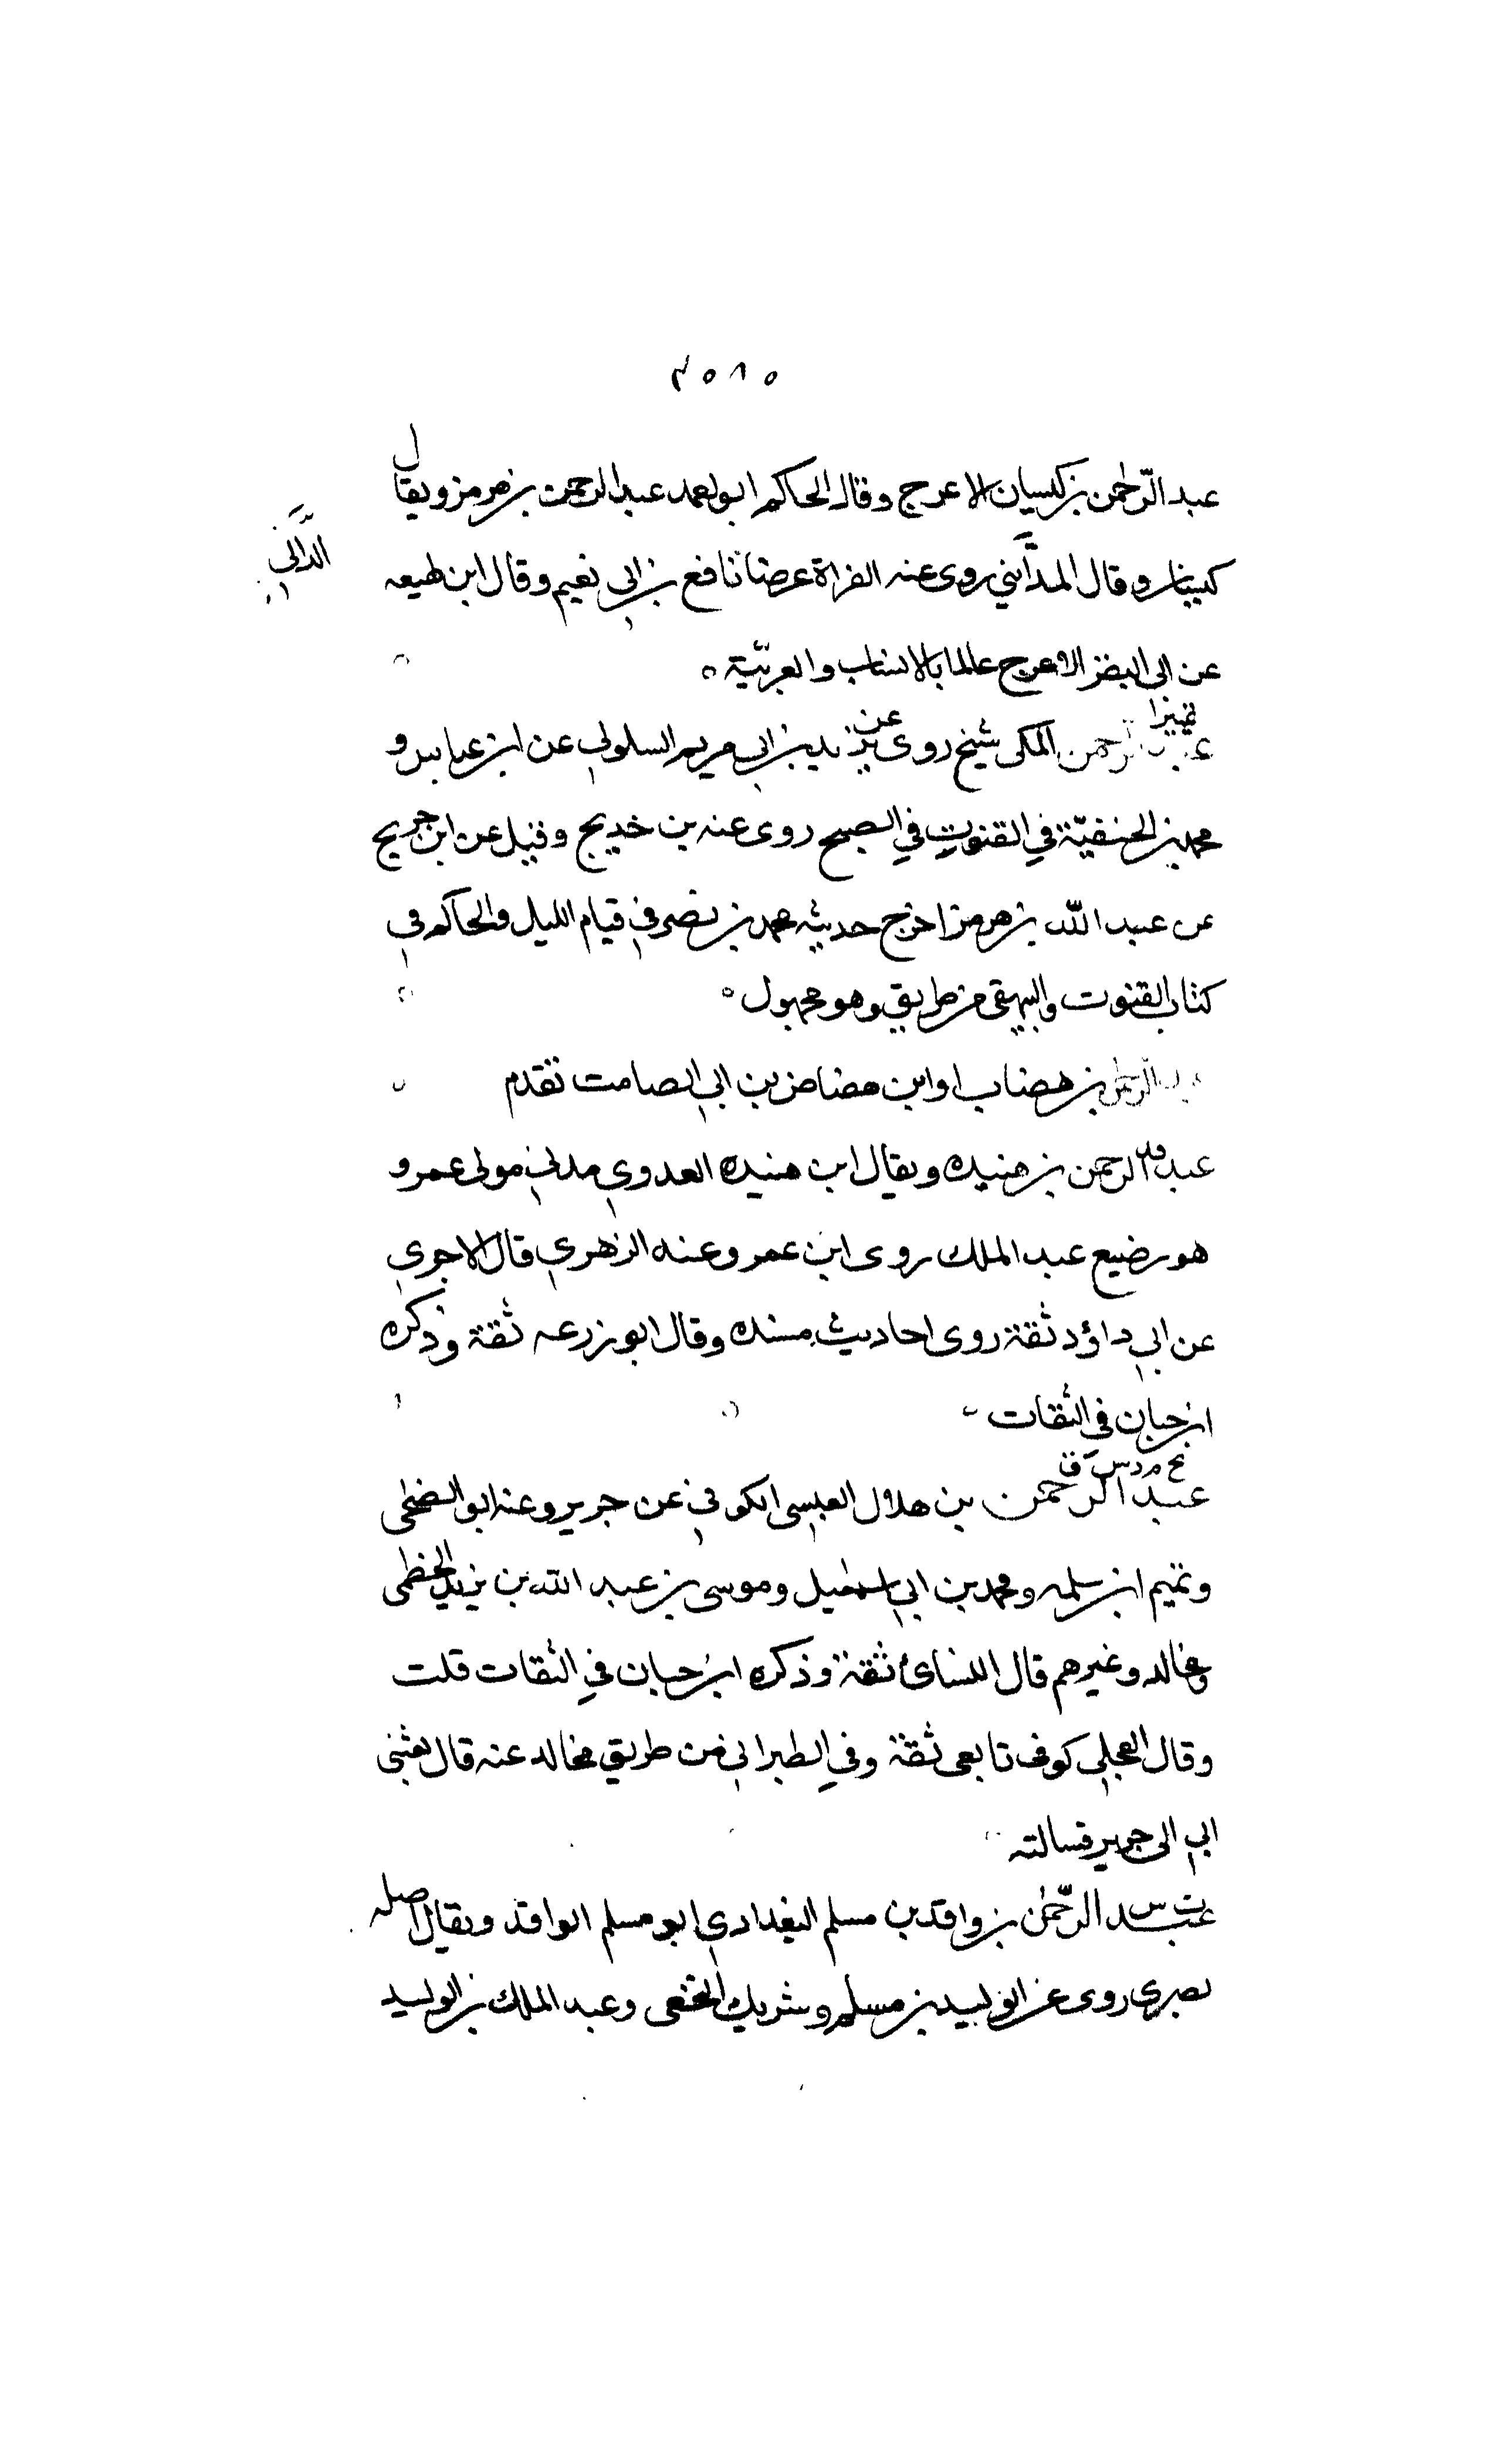 ٢٠٨٥
عبد الرّحمٰن بن كيسان الاعرج وقال الحاكم ابو احمد عبد الرحمن بن هرمز ويقال
كيسان وقال المدآئني روى عنه القراة عرضا نافع بن ابي نعيم وقال ابن لهيعه
الدَّاني
عن ابى النضر الاعرج عالما بالانساب والعربيّة ٥
تميزا
عبد الرحمن المكى شيخ روى عن بريد بن ابي مريم السلولي عن ابن عباس و
محمد بن الحنفيّة في القنوت في الصبح روى عنه بن خديج وقيل عن ابن جريج
عن عبد اللّه بن هرمز اخرج حديثه محمد بن نصر في قيام الليل والحاكم في
كتاب القنوت والبيهقى من طريق وهو مجهول ٥
عبد الرحمٰن بن هضاب او ابن هضاض بن ابي الصامت تقدم
عبد الرحمن بن هنيده ويقال ابن هنيده العدوي مدني مولى عمر و
هو رضيع عبد الملك روى ابن عمر وعنه الزهري قال الاجري
عن ابي داؤد ثقة روى احاديث مسنده وقال ابو زرعه ثقة وذكره
ابن حبان في الثقات
بخ م د س ق
عبد الرحمن بن هلال العبسى الكوفي عن جرير وعنه ابو الضحٰى
وتميم ابن سلمه ومحمد بن ابي اسمٰعيل وموسى بن عبد اللّه بن يزيد الخطمى
ومجالد وغيرهم قال النسائ ثقة وذكره ابن حبان في الثقات قلت
وقال العجلي كوفى تابعى ثقة وفي الطبراني من طريق مجالد عنه قال بعثنى
ابي الى جرير فسالته
ت س
عبد الرّحمٰن بن واقد بن مسلم البغدادي ابو مسلم الواقد ويقال اصله
بصرى روى عن الوليد بن مسلم وشريك النخعى وعبد الملك بن الوليد